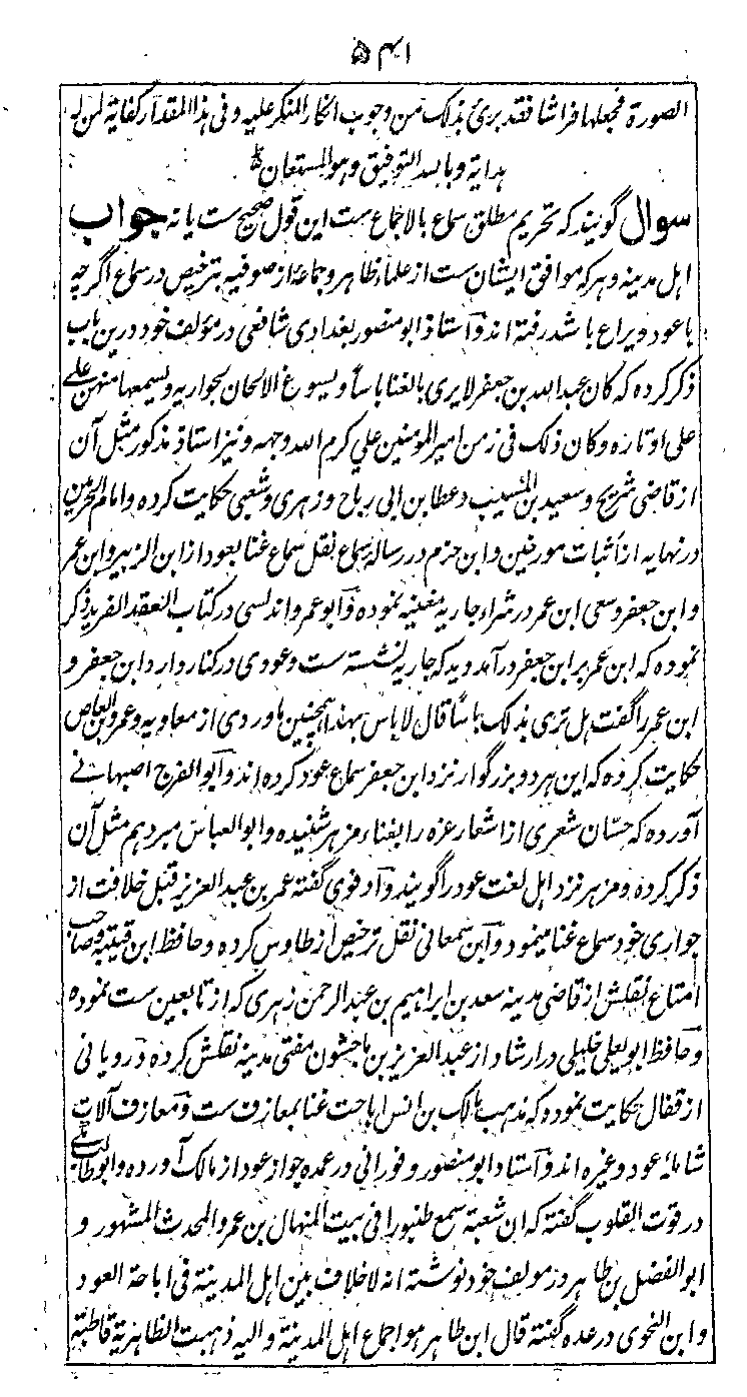 ۵۴۱
الصورة فجعلها فراشا فقد برئ بذلک من وجوب انکار المنکر علیه وفی هذا المقدار کفایة لمن له
هدایة وبالله التوفیق وهو المستعان
سوال گویند که تحریم مطلق سماع بالاجماع ست این قول صحیح ست یا نه جواب
اهل مدینه وهر که موافق ایشان ست از علماء ظاهر وجماعه از صوفیه بترخیص در سماع اگرچه
با عود ویراع باشد رفته اند واستاذ ابو منصور بغدادی شافعی در مؤلف خود درین باب
ذکر کرده که کان عبدالله بن جعفر لایری بالغنا باسا ویسوغ الالحان لجواریه ویسمعها منهن علی
علی اوتاره وکان ذلک فی زمن امیر المؤمنین علی کرم الله وجهه ونیز استاذ مذکور مثل آن
از قاضی شریح وسعید بن المسیب وعطا بن ابی رباح وزهری وشعبی حکایت کرده وامام الحرمین
در نهایه از اثبات مورخین وابن حزم در رساله سماع نقل سماع غنا بعود از ابن الزبیر وابن عمر
وابن جعفر وسعی ابن عمر در شراء جاریه مغنیه نموده وابو عمرو اندلسی در کتاب العقد الفرید ذکر
نموده که ابن عمر بر ابن جعفر در آمد دید که جاریه نشسته ست وعودی در کنار دارد ابن جعفر و
ابن عمر را گفت هل تری بذلک باسا قال لا باس بهذا همچنین ماوردی از معاویه وعمرو بن العاص
حکایت کرده که این هر دو بزرگوار نزد ابن جعفر سماع عود کرده اند وابو الفرج اصبهانے
آورده که حسّان شعری از اشعار عزه را بغناء مزهر شنیده وابو العباس مبرد هم مثل آن
ذکر کرده ومزهر نزد اهل لغت عود را گویند وادفوی گفته عمر بن عبد العزیز قبل خلافت از
جواری خود سماع غنا مینمود وابن سمعانی نقل ترخیص از طاوس کرده وحافظ ابن قتیبه وصاحب
امتاع نقلش از قاضی مدینه سعد بن ابراهیم بن عبد الرحمن زهری که از تابعین ست نموده
وحافظ ابو یعلی خلیلی در ارشاد از عبد العزیز بن ماجشون مفتی مدینه نقلش کرده ورویانی
از قفال حکایت نموده که مذهب مالک بن انس اباحت غنا بمعازف ست ومعازف آلات
شامله عود وغیره اند واستاد ابو منصور وفورانی در عمده جواز عود از مالک آورده وابو طالب مکے
در قوت القلوب گفته که ان شعبة سمع طنبورا فی بیت المنهال بن عمرو المحدث المشهور و
ابو الفضل بن طاهر در مولف خود نوشته انه لاخلاف بین اهل المدینة فی اباحة العود
وابن النحوی در عمده گفته قال ابن طاهر هو اجماع اهل المدینة والیه ذهبت الظاهریة قاطبة